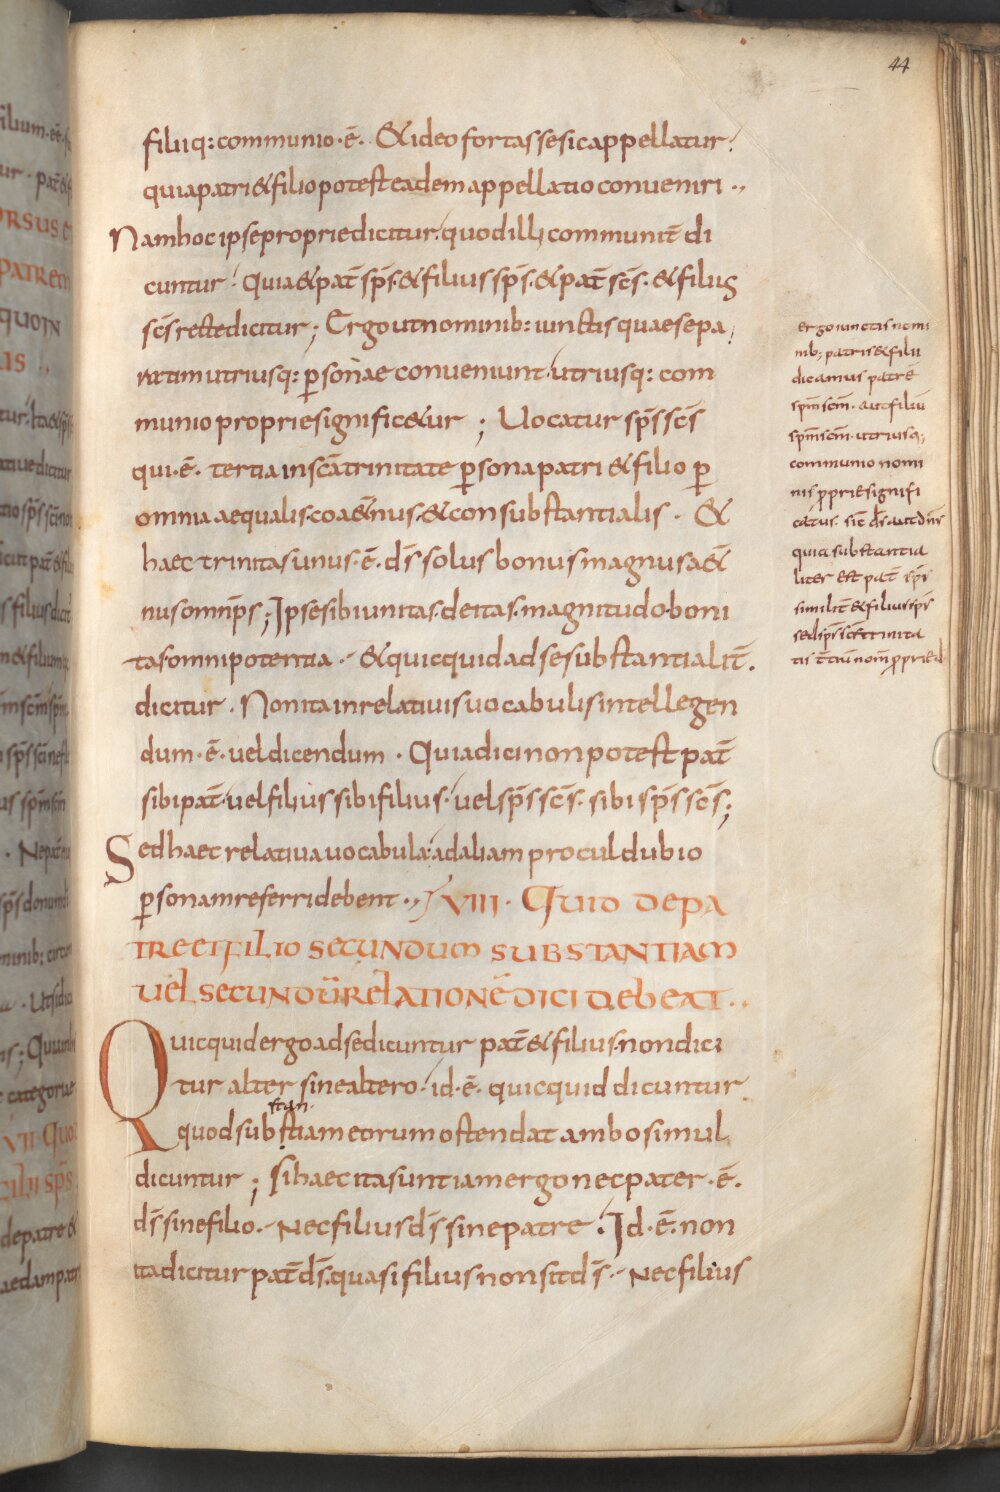 44
filiiq: communio·ē. & ideo fortasse sic appellatur!
quia patri & filio potest eadem appellatio conveniri .,
Nam hoc ipse proprie dicitur. quod illi communit̄ di
cuntur! Quia & pat̄ sp̄s. & filius sp̄s. & pat̄ sc̄s. & filius
sc̄s recte dicitur; Ergo ut nominib: iunctis quae sepa
ratim utriusq: personae conveniunt. utriusq: com
munio proprie significetur; Uocatur sp̄s sc̄s
qui·ē. tertia in sc̄a trinitate p̱sona patri & filio p̱
omnia aequalis. coaet̄nus. & consubstantialis. &
haec trinitas unus·ē. d̄s solus bonus magnus aet̄
nus omnip̄s; Ipse sibi unitas. deitas. magnitudo. boni
tas omnipotentia. & quicquid ad se substantialit̄.
dicitur. Non ita in relativis vocabulis intellegen
dum·ē. vel dicendum. Quia dici non potest pat̄
sibi pat̄. vel filius sibi filius. vel sp̄s sc̄s. sibi sp̄s sc̄s;
Sed haec relativa vocabula. ad aliam procul dubio
p̱sonam referri debent., VIII. QUID DE PA
TRE ET FILIO SECUNDUM SUBSTANTIAM
VEL SECUNDŪ RELATIONĒ DICI DEBEAT..
Quicquid ergo ad se dicuntur pat̄ & filius. non dici
tur alter sine altero. id·ē. quicquid dicuntur
stan
quod substiam eorum ostendat ambo simul
dicuntur; si haec ita sunt iam ergo nec pater·ē.
d̄s sine filio. Nec filius d̄s sine patre. Id·ē. non
ita dicitur pat̄ d̄s. quasi filius non sit d̄s. Nec filius
ergo iunctis nomi
nib; patris & filii
dicamus patrē
sp̄m sc̄m. aut filiū
sp̄m sc̄m. utriusq;
communio nomi
nis p̱prie signifi
catur. sic d̄s aut dn̄s
quia substantia
liter est pat̄ sp̄s
similit̄ & filius sp̄s
sed sp̄s sc̄s trinita